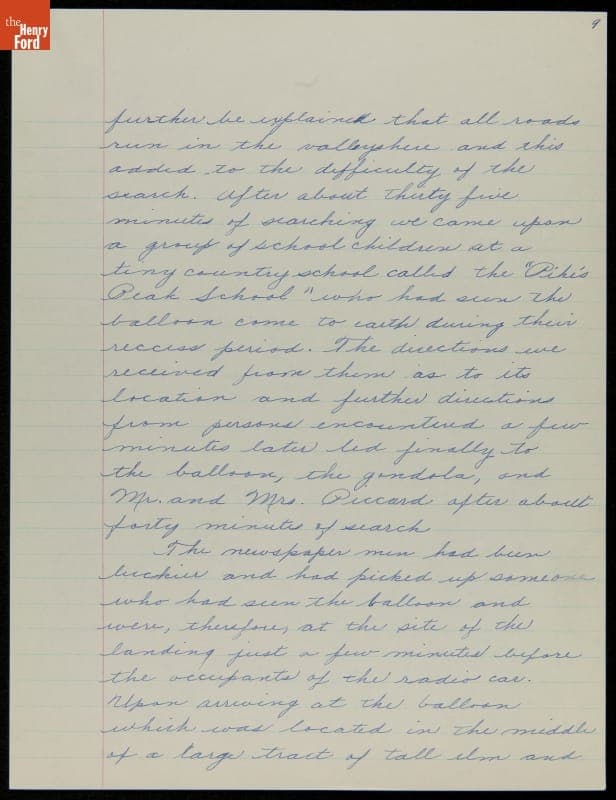 the
Henry
Ford
9
further be explained that all roads
run in the valleys here and this
added to the difficulty of the
search. After about thirty five
minutes of searching we came upon
a group of school children at a
tiny country school called the "Pike's
Peak School" who had seen the
balloon come to earth during their
reccess period. The directions we
received from them as to its
location and further directions
from persons encountered a few
minutes later led finally to
the balloon, the gondola, and
Mr. and Mrs. Piccard after about
forty minutes of search
The newspaper men had been
luckier and had picked up someone
who had seen the balloon and
were, therefore, at the site of the
landing just a few minutes before
the occupants of the radio car.
Upon arriving at the balloon
which was located in the middle
of a large tract of tall elm and